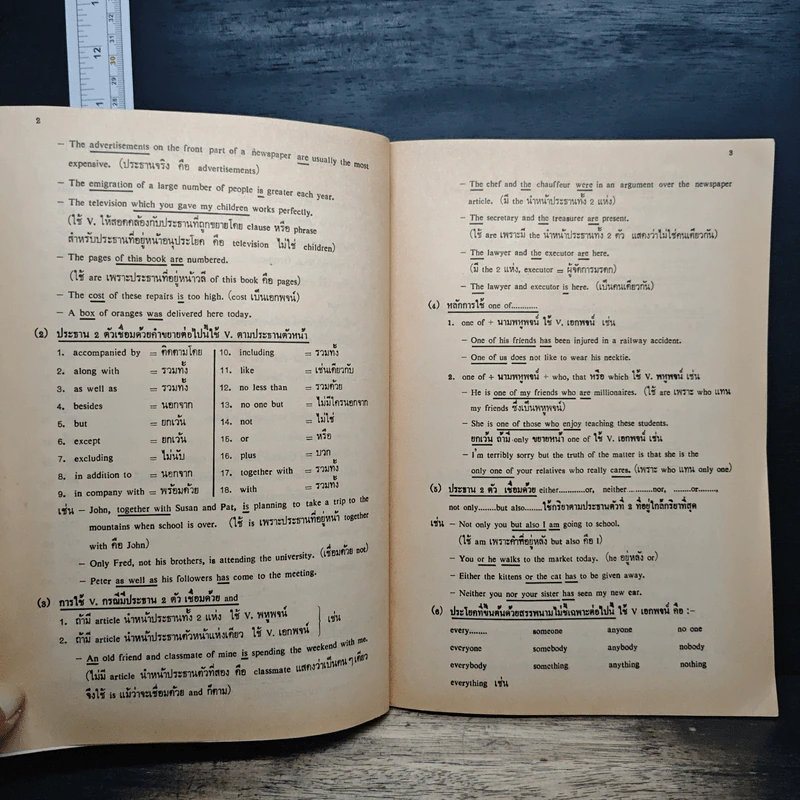 12
11
32
31
30
29
28
2
– The advertisements on the front part of a newspaper are usually the most
expensive. (ประธานจริง คือ advertisements)
– The emigration of a large number of people is greater each year.
– The television which you gave my children works perfectly.
(ใช้ V. ให้สอดคล้องกับประธานที่ถูกขยายโดย clause หรือ phrase
สำหรับประธานที่อยู่หน้าอนุประโยค คือ television ไม่ใช่ children)
– The pages of this book are numbered.
(ใช้ are เพราะประธานที่อยู่หน้าวลี of this book คือ pages)
– The cost of these repairs is too high. (cost เป็นเอกพจน์)
– A box of oranges was delivered here today.
(๒) ประธาน 2 ตัวเชื่อมด้วยคำขยายต่อไปนี้ใช้ V. ตามประธานตัวหน้า
1. accompanied by = ติดตามโดย
2. along with = รวมทั้ง
3. as well as = รวมทั้ง
4. besides = นอกจาก
5. but = ยกเว้น
6. except = ยกเว้น
7. excluding = ไม่นับ
8. in addition to = นอกจาก
9. in company with = พร้อมด้วย
10. including = รวมทั้ง
11. like = เช่นเดียวกับ
12. no less than = รวมด้วย
13. no one but = ไม่มีใครนอกจาก
14. not = ไม่ใช่
15. or = หรือ
16. plus = บวก
17. together with = รวมทั้ง
18. with = รวมทั้ง
เช่น – John, together with Susan and Pat, is planning to take a trip to the
mountains when school is over. (ใช้ is เพราะประธานที่อยู่หน้า together
with คือ John)
– Only Fred, not his brothers, is attending the university. (เชื่อมด้วย not)
– Peter as well as his followers has come to the meeting.
(๓) การใช้ V. กรณีมีประธาน 2 ตัว เชื่อมด้วย and
1. ถ้ามี article นำหน้าประธานทั้ง 2 แห่ง ใช้ V. พหูพจน์
2. ถ้ามี article นำหน้าประธานตัวหน้าแห่งเดียว ใช้ V. เอกพจน์ } เช่น
– An old friend and classmate of mine is spending the weekend with me.
(ไม่มี article นำหน้าประธานตัวที่สอง คือ classmate แสดงว่าเป็นคน ๆ เดียว
จึงใช้ is แม้ว่าจะเชื่อมด้วย and ก็ตาม)
3
– The chef and the chauffeur were in an argument over the newspaper
article. (มี the นำหน้าประธานทั้ง 2 แห่ง)
– The secretary and the treasurer are present.
(ใช้ are เพราะมี the นำหน้าประธานทั้ง 2 ตัว แสดงว่าไม่ใช่คนเดียวกัน)
– The lawyer and the executor are here.
(มี the 2 แห่ง, executor = ผู้จัดการมรดก)
– The lawyer and executor is here. (เป็นคนเดียวกัน)
(๔) หลักการใช้ one of............
1. one of + นามพหูพจน์ ใช้ V. เอกพจน์ เช่น
– One of his friends has been injured in a railway accident.
– One of us does not like to wear his necktie.
2. one of + นามพหูพจน์ + who, that หรือ which ใช้ V. พหูพจน์ เช่น
– He is one of my friends who are millionaires. (ใช้ are เพราะ who แทน
my friends ซึ่งเป็นพหูพจน์)
– She is one of those who enjoy teaching these students.
ยกเว้น ถ้ามี only ขยายหน้า one of ใช้ V. เอกพจน์ เช่น
– I'm terribly sorry but the truth of the matter is that she is the
only one of your relatives who really cares. (เพราะ who แทน only one)
(๕) ประธาน 2 ตัว เชื่อมด้วย either..........or, neither ..........nor, ........or.......,
not only.......but also.......ใช้กริยาตามประธานตัวที่ 2 ที่อยู่ใกล้กริยาที่สุด
เช่น – Not only you but also I am going to school.
(ใช้ am เพราะคำที่อยู่หลัง but also คือ I)
– You or he walks to the market today. (he อยู่หลัง or)
– Either the kittens or the cat has to be given away.
– Neither you nor your sister has seen my new car.
(๖) ประโยคที่ขึ้นต้นด้วยสรรพนามไม่ชี้เฉพาะต่อไปนี้ ใช้ V. เอกพจน์ คือ :-
every........ someone anyone no one
everyone somebody anybody nobody
everybody something anything nothing
everything เช่น